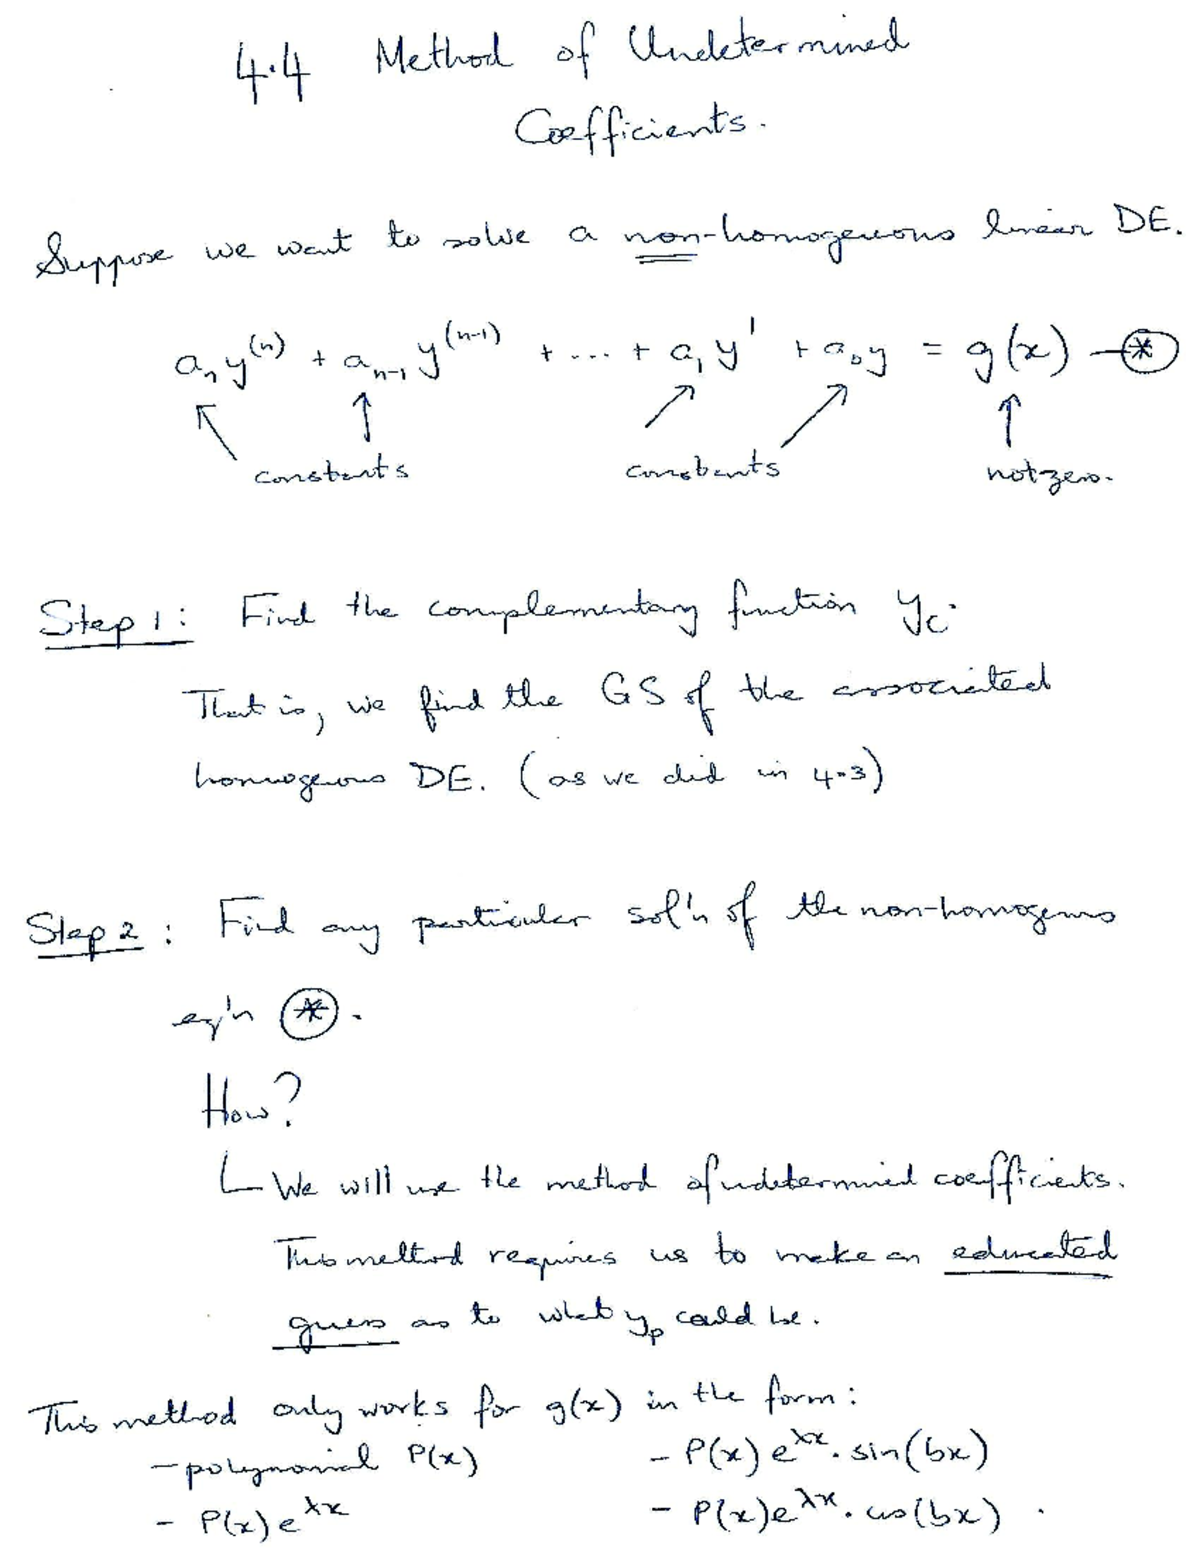 4.4 Method of Undetermined
Coefficients.
Suppose we want to solve a non-homogeneous linear DE.
aₙy⁽ⁿ⁾ + aₙ₋₁y⁽ⁿ⁻¹⁾ + ... + a₁y' + a₀y = g(x) —⊛
constants constants not zero.
Step 1: Find the complementary function y_c.
That is, we find the GS of the associated
homogenous DE. (as we did in 4.3)
Step 2: Find any particular sol'n of the non-homogenous
eq'n ⊛.
How?
We will use the method of undetermined coefficients.
This method requires us to make an educated
guess as to what y_p could be.
This method only works for g(x) in the form:
- polynomial P(x) - P(x)e^λx. sin(bx)
- P(x)e^λx - P(x)e^λx. cos(bx).